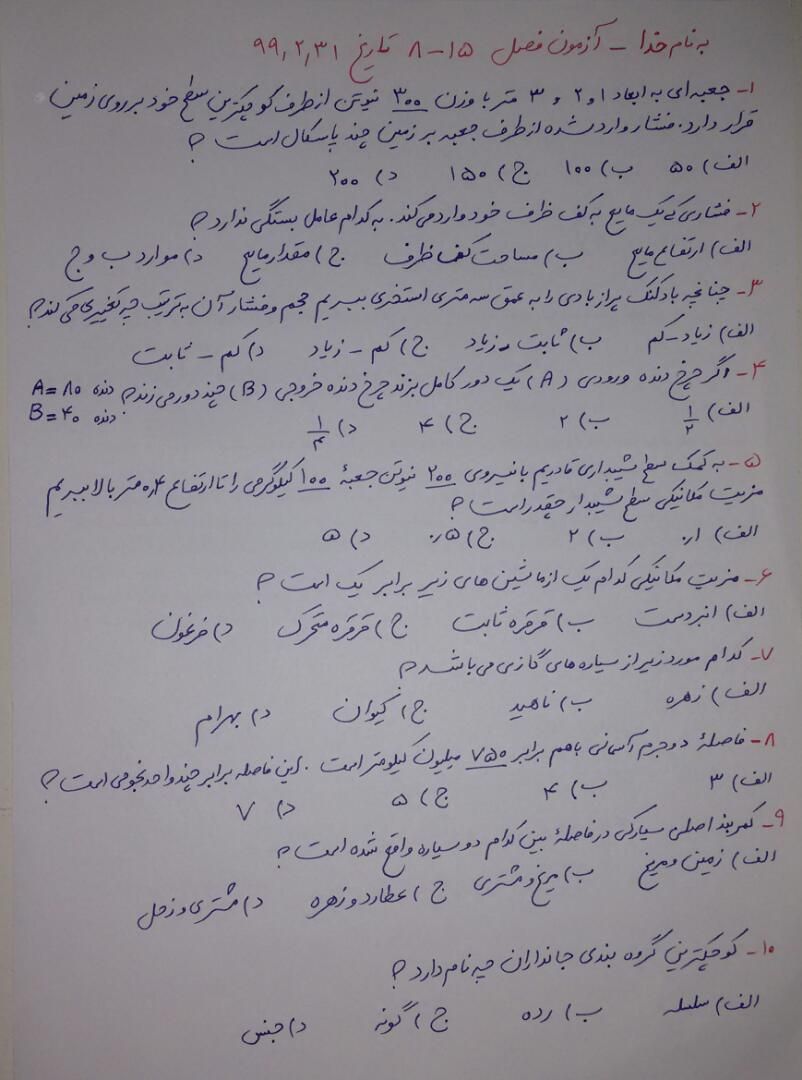 به نام خدا - آزمون فصل ۱۵-۸ تاریخ ۹۹٫۲٫۳۱
۱- جعبه‌ای به ابعاد ۱ و ۲ و ۳ متر با وزن ۳۰۰ نیوتن از طرف کوچکترین سطح خود بر روی زمین
قرار دارد. فشار وارد شده از طرف جعبه بر زمین چند پاسکال است ؟
الف) ۵۰ ب) ۱۰۰ ج) ۱۵۰ د) ۲۰۰
۲- فشاری که یک مایع به کف ظرف خود وارد می‌کند. به کدام عامل بستگی ندارد ؟
الف) ارتفاع مایع ب) مساحت کف ظرف ج) مقدار مایع د) موارد ب و ج
۳- چنانچه بادکنک پر از بادی را به عمق سه متری استخری ببریم حجم و فشار آن به ترتیب چه تغییری می کند؟
الف) زیاد - کم ب) ثابت - زیاد ج) کم - زیاد د) کم - ثابت
۴- اگر چرخ دنده ورودی (A) یک دور کامل بزند چرخ دنده خروجی (B) چند دور می زند؟ دنده A=۸۰
دنده B=۴۰
الف) ۱/۲ ب) ۲ ج) ۴ د) ۱/۴
۵- به کمک سطح شیبداری قادریم با نیروی ۲۰۰ نیوتن جعبهٔ ۱۰۰ کیلوگرمی را تا ارتفاع ۰٫۴ متر بالا ببریم
مزیت مکانیکی سطح شیبدار چقدر است ؟
الف) ۰٫۱ ب) ۲ ج) ۰٫۵ د) ۵
۶- مزیت مکانیکی کدام یک از ماشین های زیر برابر یک است ؟
الف) انبردست ب) قرقره ثابت ج) قرقره متحرک د) فرغون
۷- کدام مورد زیر از سیاره های گازی می باشد ؟
الف) زهره ب) ناهید ج) کیوان د) بهرام
۸- فاصلهٔ دو جرم آسمانی باهم برابر ۷۵۰ میلیون کیلومتر است . این فاصله برابر چند واحد نجومی است ؟
الف) ۳ ب) ۴ ج) ۵ د) ۷
۹- کمربند اصلی سیارکی در فاصلهٔ بین کدام دو سیاره واقع شده است ؟
الف) زمین و مریخ ب) مریخ و مشتری ج) عطارد و زهره د) مشتری و زحل
۱۰- کوچکترین گروه بندی جانداران چه نام دارد ؟
الف) سلسله ب) رده ج) گونه د) جنس